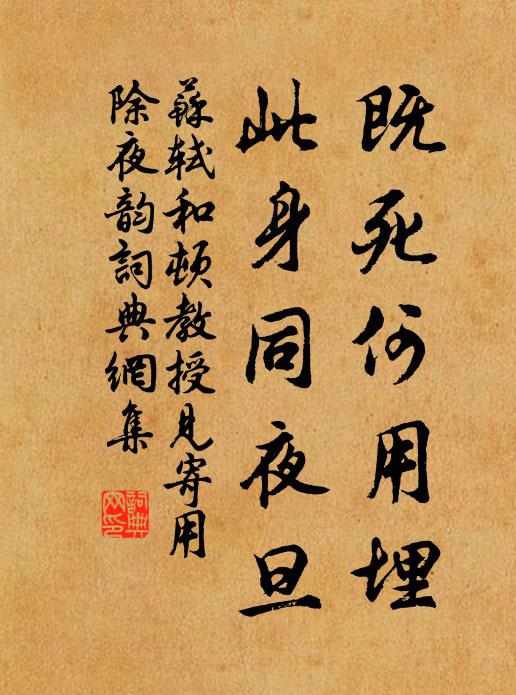 既死何用埋
此身同夜旦
蘇軾和頓教授見寄用
除夜韵詞典網集
詞典
网印